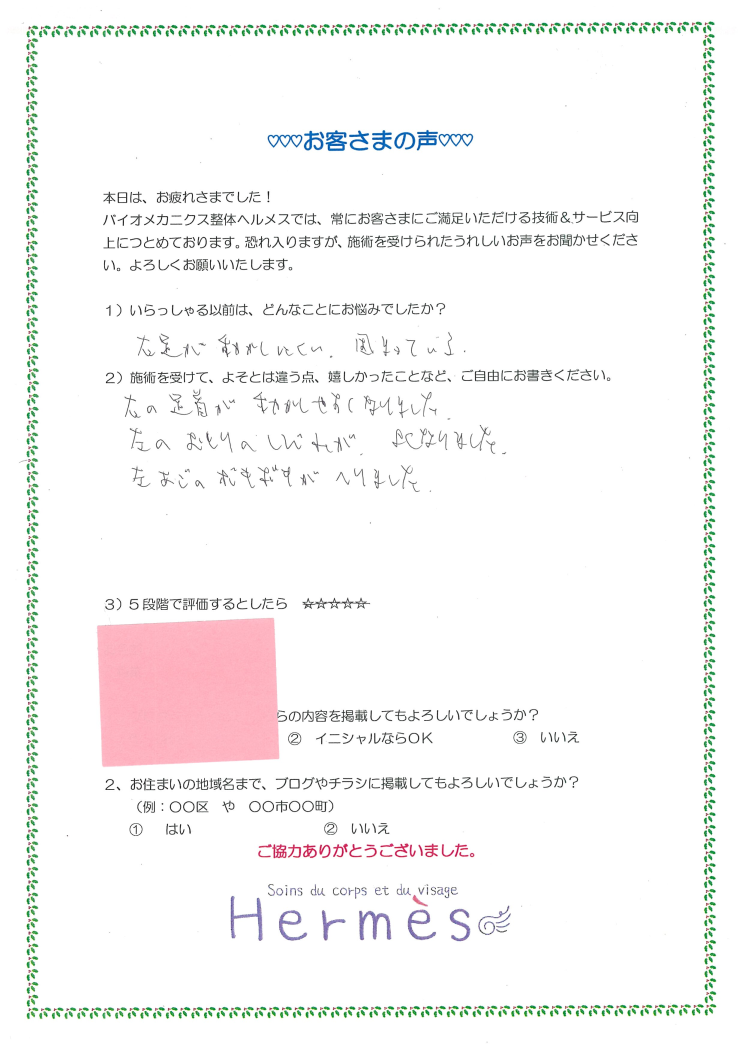 ♡♡♡お客さまの声♡♡♡
本日は、お疲れさまでした！
バイオメカニクス整体ヘルメスでは、常にお客さまにご満足いただける技術＆サービス向
上につとめております。恐れ入りますが、施術を受けられたうれしいお声をお聞かせくださ
い。よろしくお願いいたします。
１）いらっしゃる以前は、どんなことにお悩みでしたか？
左足が 動かしにくい. 固まっている.
２）施術を受けて、よそとは違う点、嬉しかったことなど、ご自由にお書きください。
左の 足首が 動かしやすくなりました.
左の おしりの しびれが. よくなりました.
左あごの がへりました.
３）５段階で評価するとしたら ☆☆☆☆☆
らの内容を掲載してもよろしいでしょうか？
② イニシャルならＯＫ ③ いいえ
２、お住まいの地域名まで、ブログやチラシに掲載してもよろしいでしょうか？
（例：〇〇区 や 〇〇市〇〇町）
① はい ② いいえ
ご協力ありがとうございました。
Soins du corps et du visage
Hermès